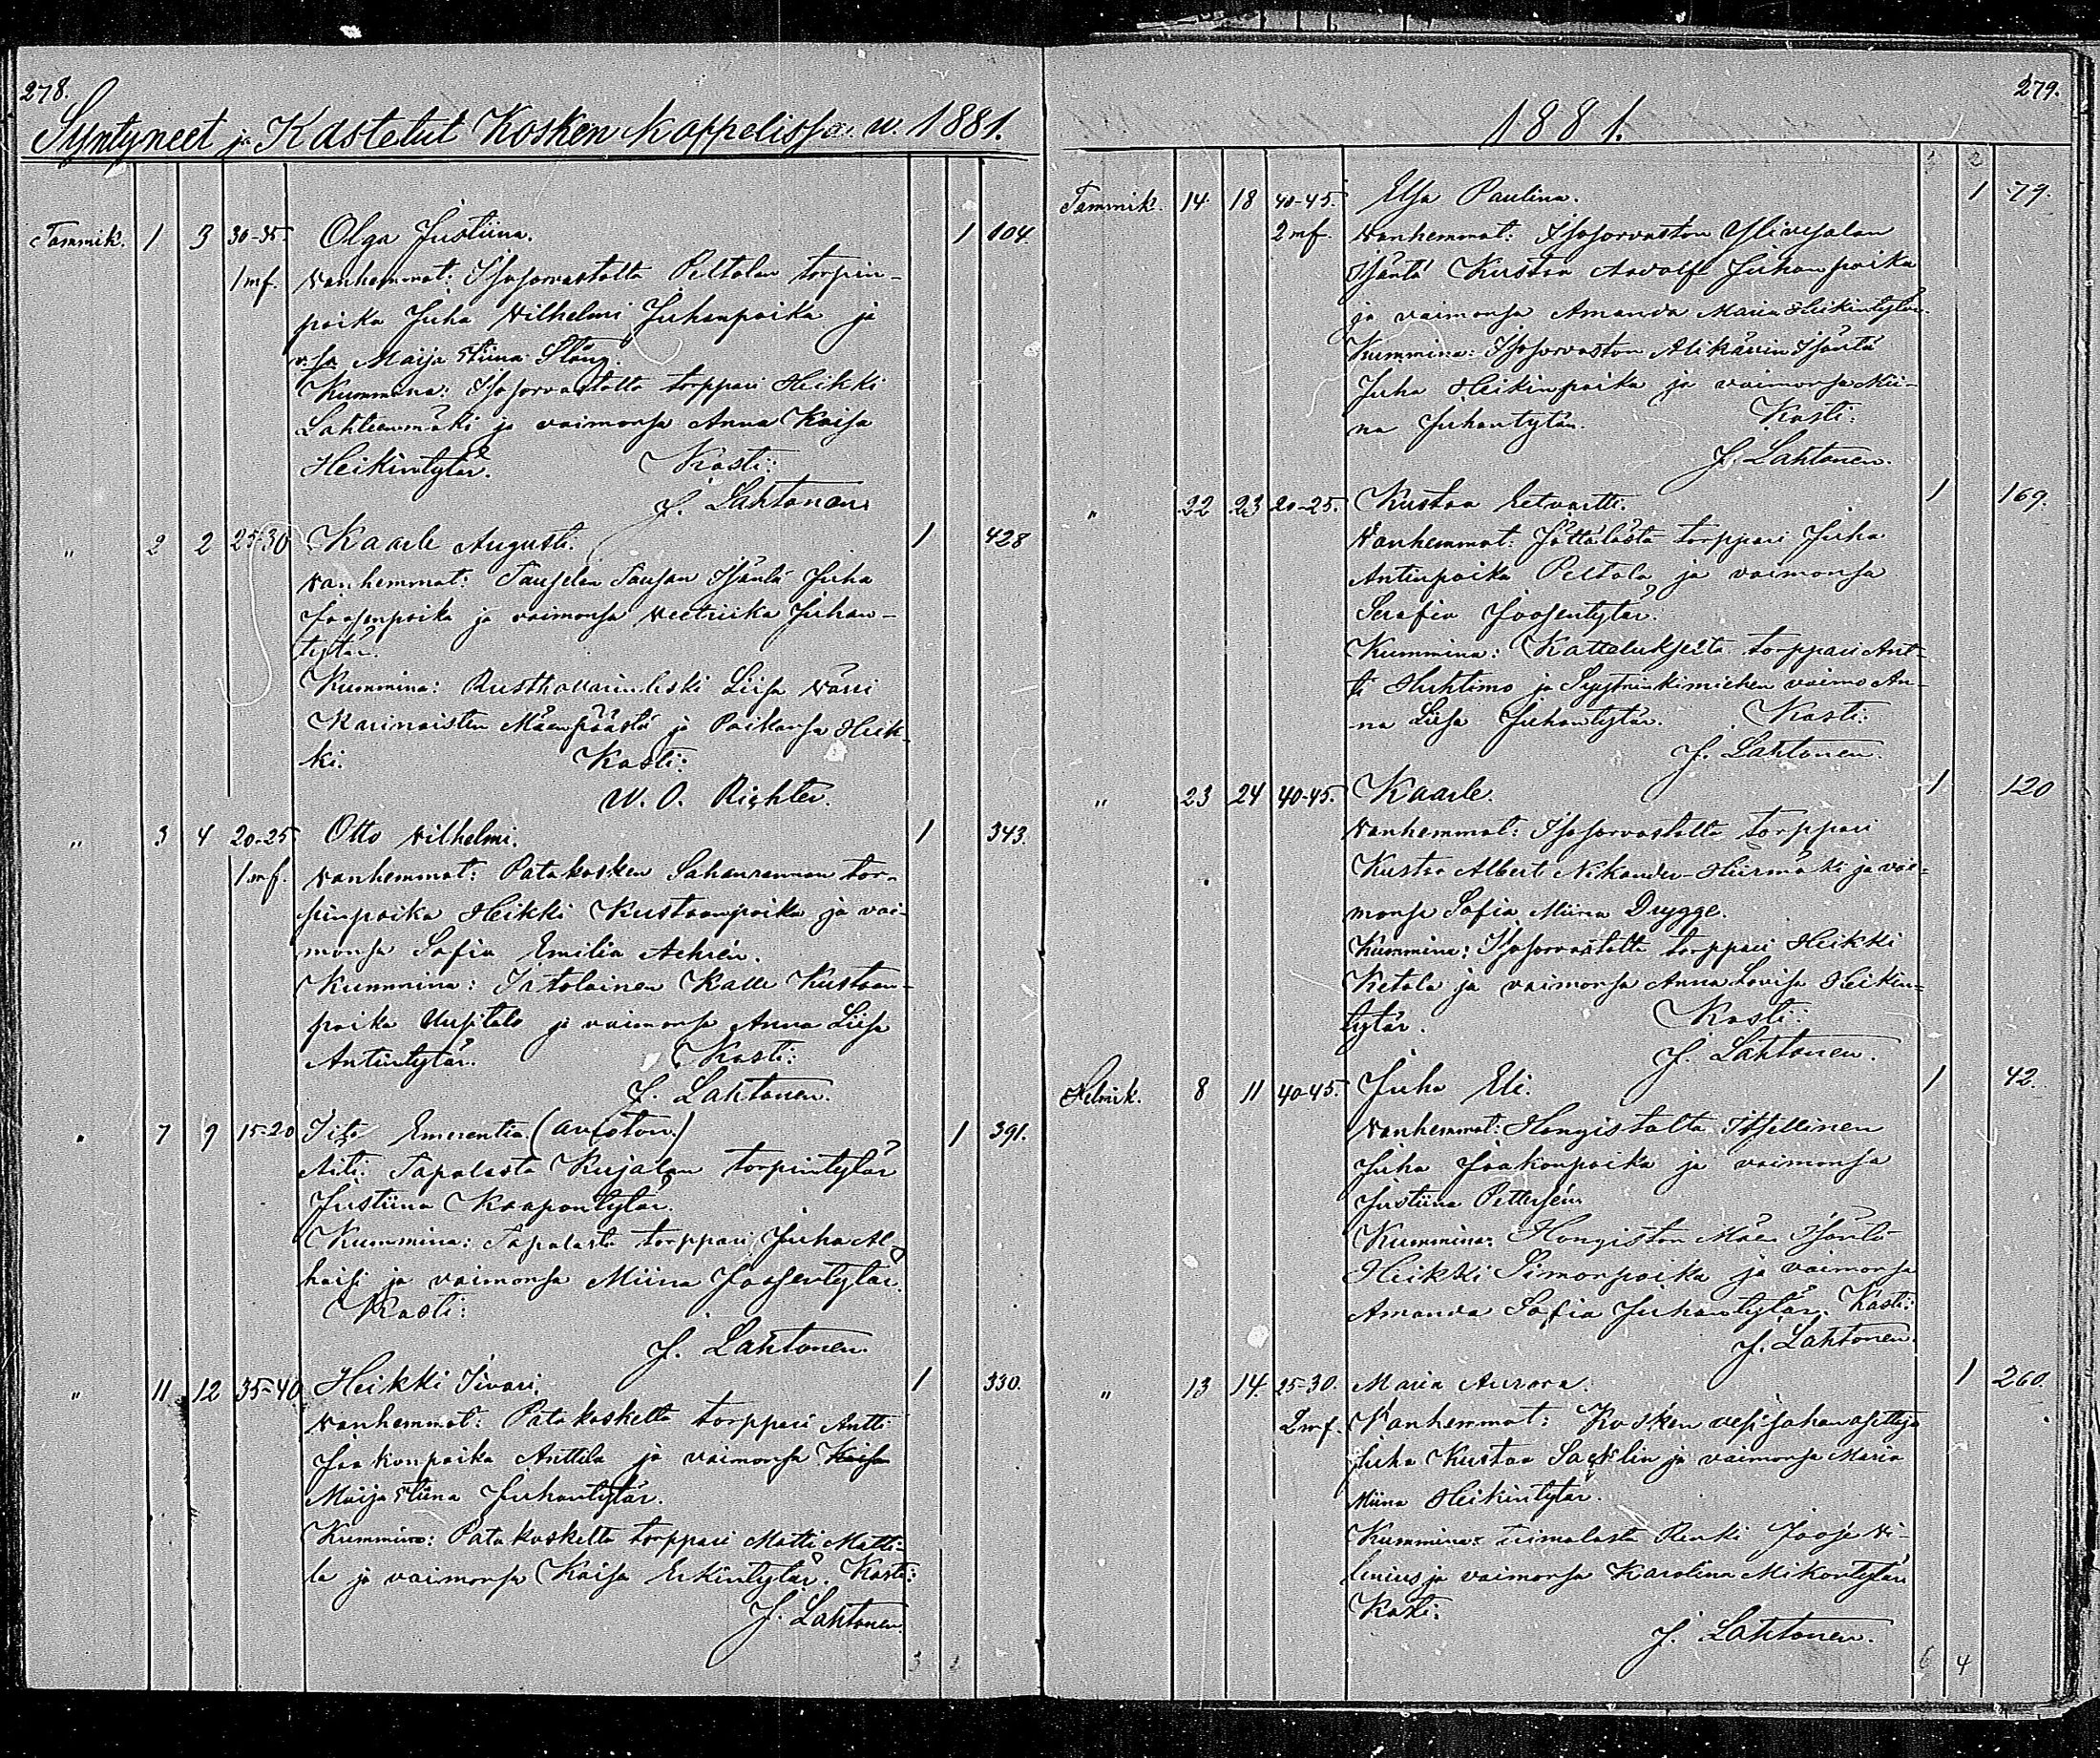 278.
Syntyneet ja Kastetut Kosken Kappelissa w. 1881.
Tammik. 1 3 30-35. Olga Justiina. 1 104.
1 mf. Vanhemmat: Isosorvastolta Peltolan torpin-
poika Juha Vilhelmi Juhanpoika ja
v:sa Maija Stiina Stång.
Kummina: Isosorvastolta torppari Heikki
Lahteenmäki ja vaimonsa Anna Kaisa
Heikintytär. Kasti:
J. Lahtonen.
" 2 2 25-30 Kaarle Augusti. 1 428
Vanhemmat: Tauselan Tausan Isäntä Juha
Joosenpoika ja vaimonsa Veetriika Juhan-
tytär.
Kummina: Rusthollarinleski Liisa Vårri
Karinaisten Mäenpäästä ja Poikansa Heik-
ki. Kasti:
W. O. Richter.
" 3 4 20-25 Otto Vilhelmi. 1 343.
1 mf. Vanhemmat: Patakosken Sahanrannan tor-
pinpoika Heikki Kustaanpoika ja vai-
monsa Sofia Emilia Achrén.
Kummina: Itsellinen Kalle Kustaan-
poika Uusitalo ja vaimonsa Anna Liisa
Antintytär. Kasti:
J. Lahtonen.
" 7 9 15-20 Iita Emerentia. (avioton.) 1 391.
Äiti: Tapalasta Kujalan torpintytär
Justiina Kaapontytär.
Kummina: Tapalasta torppari Juha Al-
haisi ja vaimonsa Miina Joosentytär.
Kasti:
J. Lahtonen.
" 11 12 35-40 Heikki Iivari. 1 330.
Vanhemmat: Patakoskelta torppari Antti
Jaakonpoika Anttila ja vaimonsa Kaisa
Maija Stiina Juhantytär.
Kummina: Patakoskelta torppari Matti Matti-
la ja vaimonsa Kaisa Erkintytär. Kasti:
J. Lahtonen.
3 2
279.
1881.
3 2
Tammik. 14 18 40-45. Elsa Paulina. 1 79.
2 mf. Vanhemmat: Isosorvaston Ylivesalan
Isäntä Kustaa Aadolf Juhanpoika
ja vaimonsa Amanda Maria Heikintytär.
Kummina: Isosorvaston Alikärrin Isäntä
Juha Heikinpoika ja vaimonsa Mii-
na Juhantytär. Kasti:
J. Lahtonen.
" 22 23 20-25. Kustaa Eetvartti. 1 169.
Vanhemmat: Jättälästä torppari Juha
Antinpoika Peltola ja vaimonsa
Serafia Joosentytär.
Kummina: Katteluksesta torppari Ant-
ti Huhtimo ja Syytninkimiehen vaimo An-
na Liisa Juhantytär. Kasti:
J. Lahtonen.
" 23 24 40-45. Kaarle. 1 120
Vanhemmat: Isosorvastolta torppari
Kustaa Albert Nikander-Hiirmäki ja vai-
monsa Sofia Miina Drygge.
Kummina: Isosorvastolta torppari Heikki
Ketola ja vaimonsa Anna Lovisa Heikin-
tytär. Kasti:
J. Lahtonen.
Helmik. 8 11 40-45. Juha Eli. 1 42.
Vanhemmat: Hongistolta Itsellinen
Juha Jaakonpoika ja vaimonsa
Justiina Pettersén.
Kummina: Hongiston Mäen Isäntä
Heikki Simonpoika ja vaimonsa
Amanda Sofia Juhantytär. Kasti:
J. Lahtonen.
" 13 14 25-30. Maria Aurora. 1 260.
2 mf. Vanhemmat: Kosken vesisahanasettaja
Juha Kustaa Sacklin ja vaimonsa Maria
Miina Heikintytär.
Kummina: Renki Joose Vi-
lenius ja vaimonsa Karolina Mikontytär.
Kasti:
J. Lahtonen.
6 4